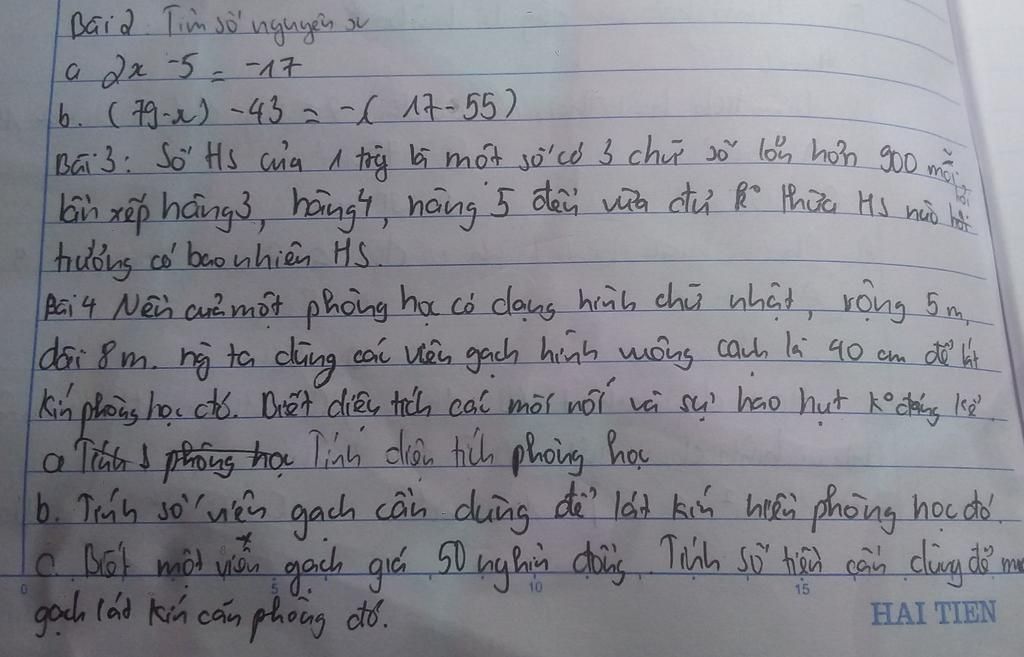 Bài 2. Tìm số nguyên x
a 2x - 5 = -17
b. (79-x) - 43 = -( 17-55)
Bài 3: Số HS của 1 trg là một số có 3 chữ số lớn hơn 900 mỗi
lần xếp hàng 3, hàng 4, hàng 5 đều vừa đủ ko thừa HS nào hỏi
trường có bao nhiên HS.
Bài 4 Nền của một phòng học có dạng hình chữ nhật, rộng 5m,
dài 8m. ng ta dùng các viên gạch hình vuông cạnh là 40 cm để lát
kín phòng học đó. Biết diện tích các mối nối và sự hao hụt ko đáng kể.
a Tính diện tích phòng học
b. Tính số viên gạch cần dùng để lát kín nền phòng học đó.
c. Biết một viên gạch giá 50 nghìn đồng. Tính số tiền cần dùng để mua
gạch lát kín căn phòng đó.
0 5 10 15
HAI TIEN